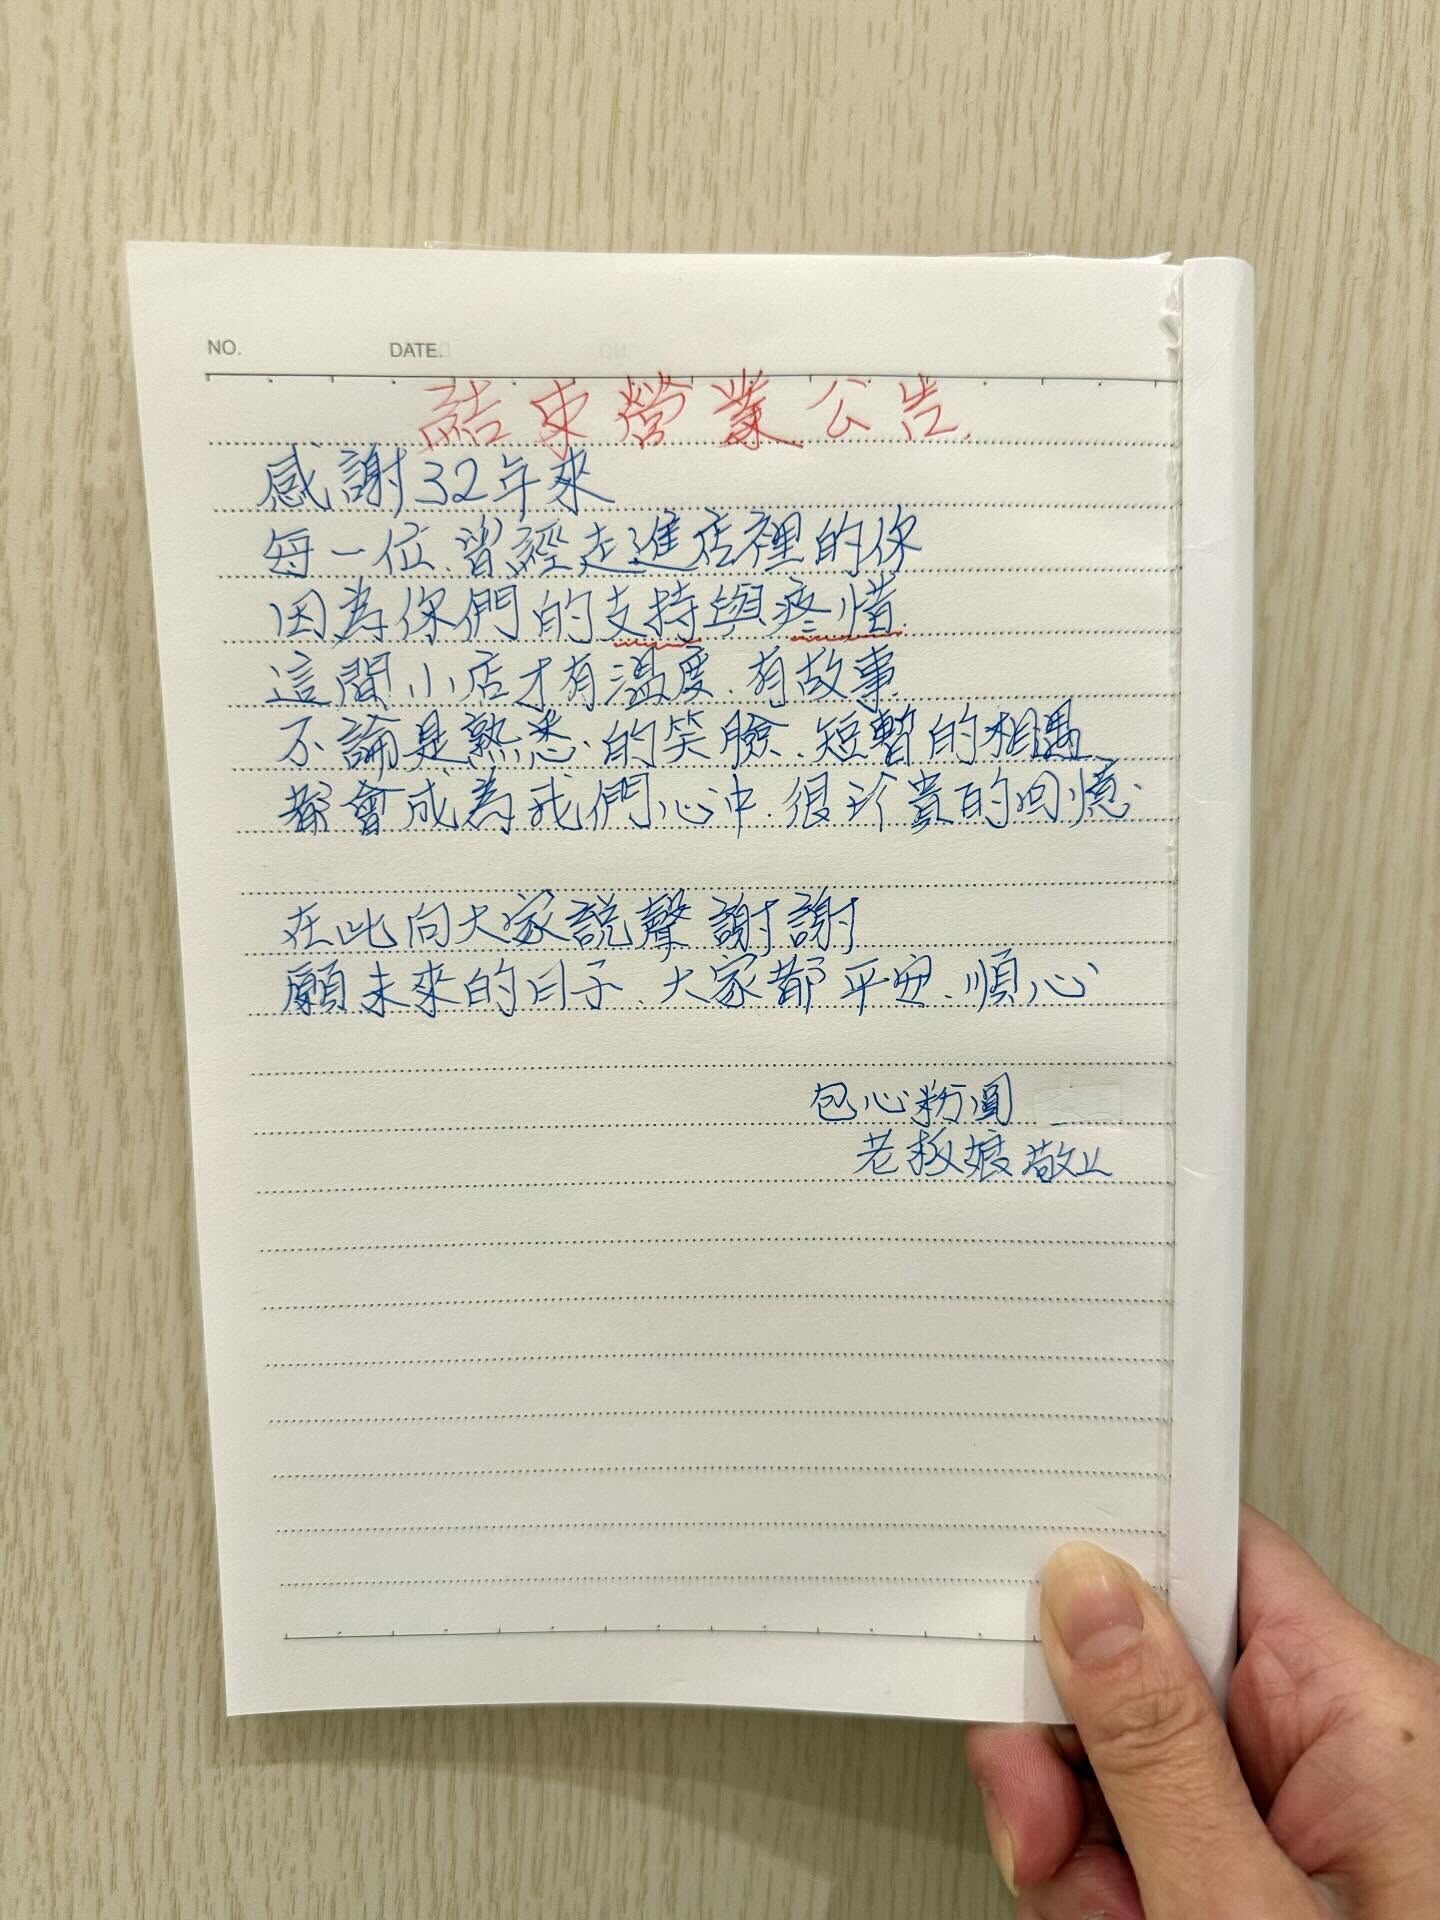 NO.
DATE.
結束營業公告.
感謝32年來
每一位、曾經走進店裡的你
因為你們的支持與疼惜.
這間小店才有溫度、有故事
不論是熟悉的笑臉、短暫的相遇
都會成為我們心中、很珍貴的回憶.
在此向大家說聲謝謝
願未來的日子、大家都平安、順心
包心粉圓
老板娘敬上